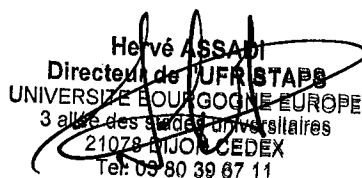 Hervé ASSADI
Directeur de l'UFR STAPS
UNIVERSITE BOURGOGNE EUROPE
3 allée des stades universitaires
21078 DIJON CEDEX
Tel: 03 80 39 67 11